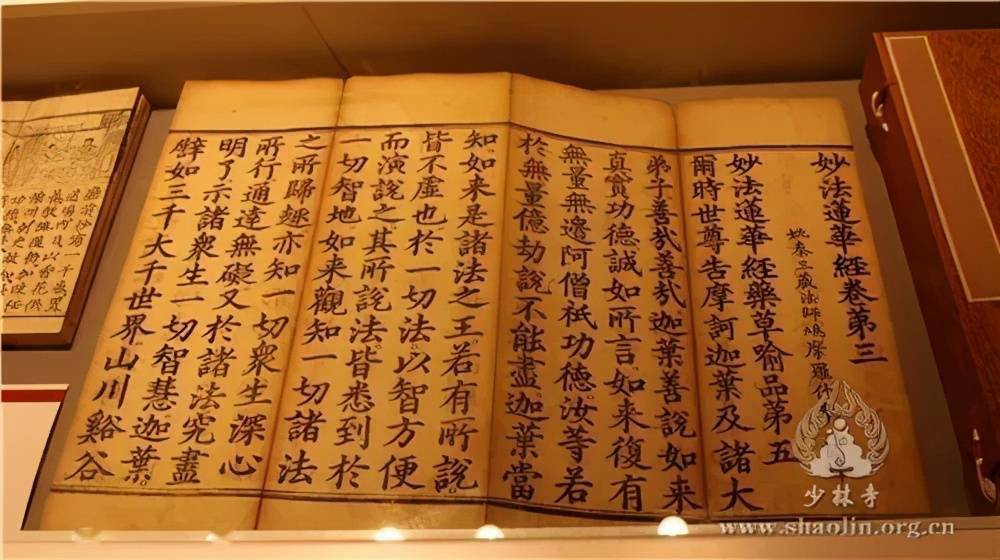 妙法蓮華經卷第三
姚秦三藏法師鳩摩羅什
妙法蓮華經藥草喻品第五
爾時世尊告摩訶迦葉及諸大
弟子善哉善哉。迦葉善說如來
真實功德誠如所言。如來復有
無量無邊阿僧祇功德。汝等若
於無量億劫說不能盡。迦葉當
知。如來是諸法之王。若有所說。
皆不虛也。於一切法以智方便
而演說之。其所說法。皆悉到於
一切智地。如來觀知一切諸法
之所歸趣。亦知一切衆生深心
所行。通達無礙。又於諸法究盡
明了。示諸衆生一切智慧。迦葉。
譬如三千大千世界。山川谿谷
少林寺
www.shaolin.org.cn